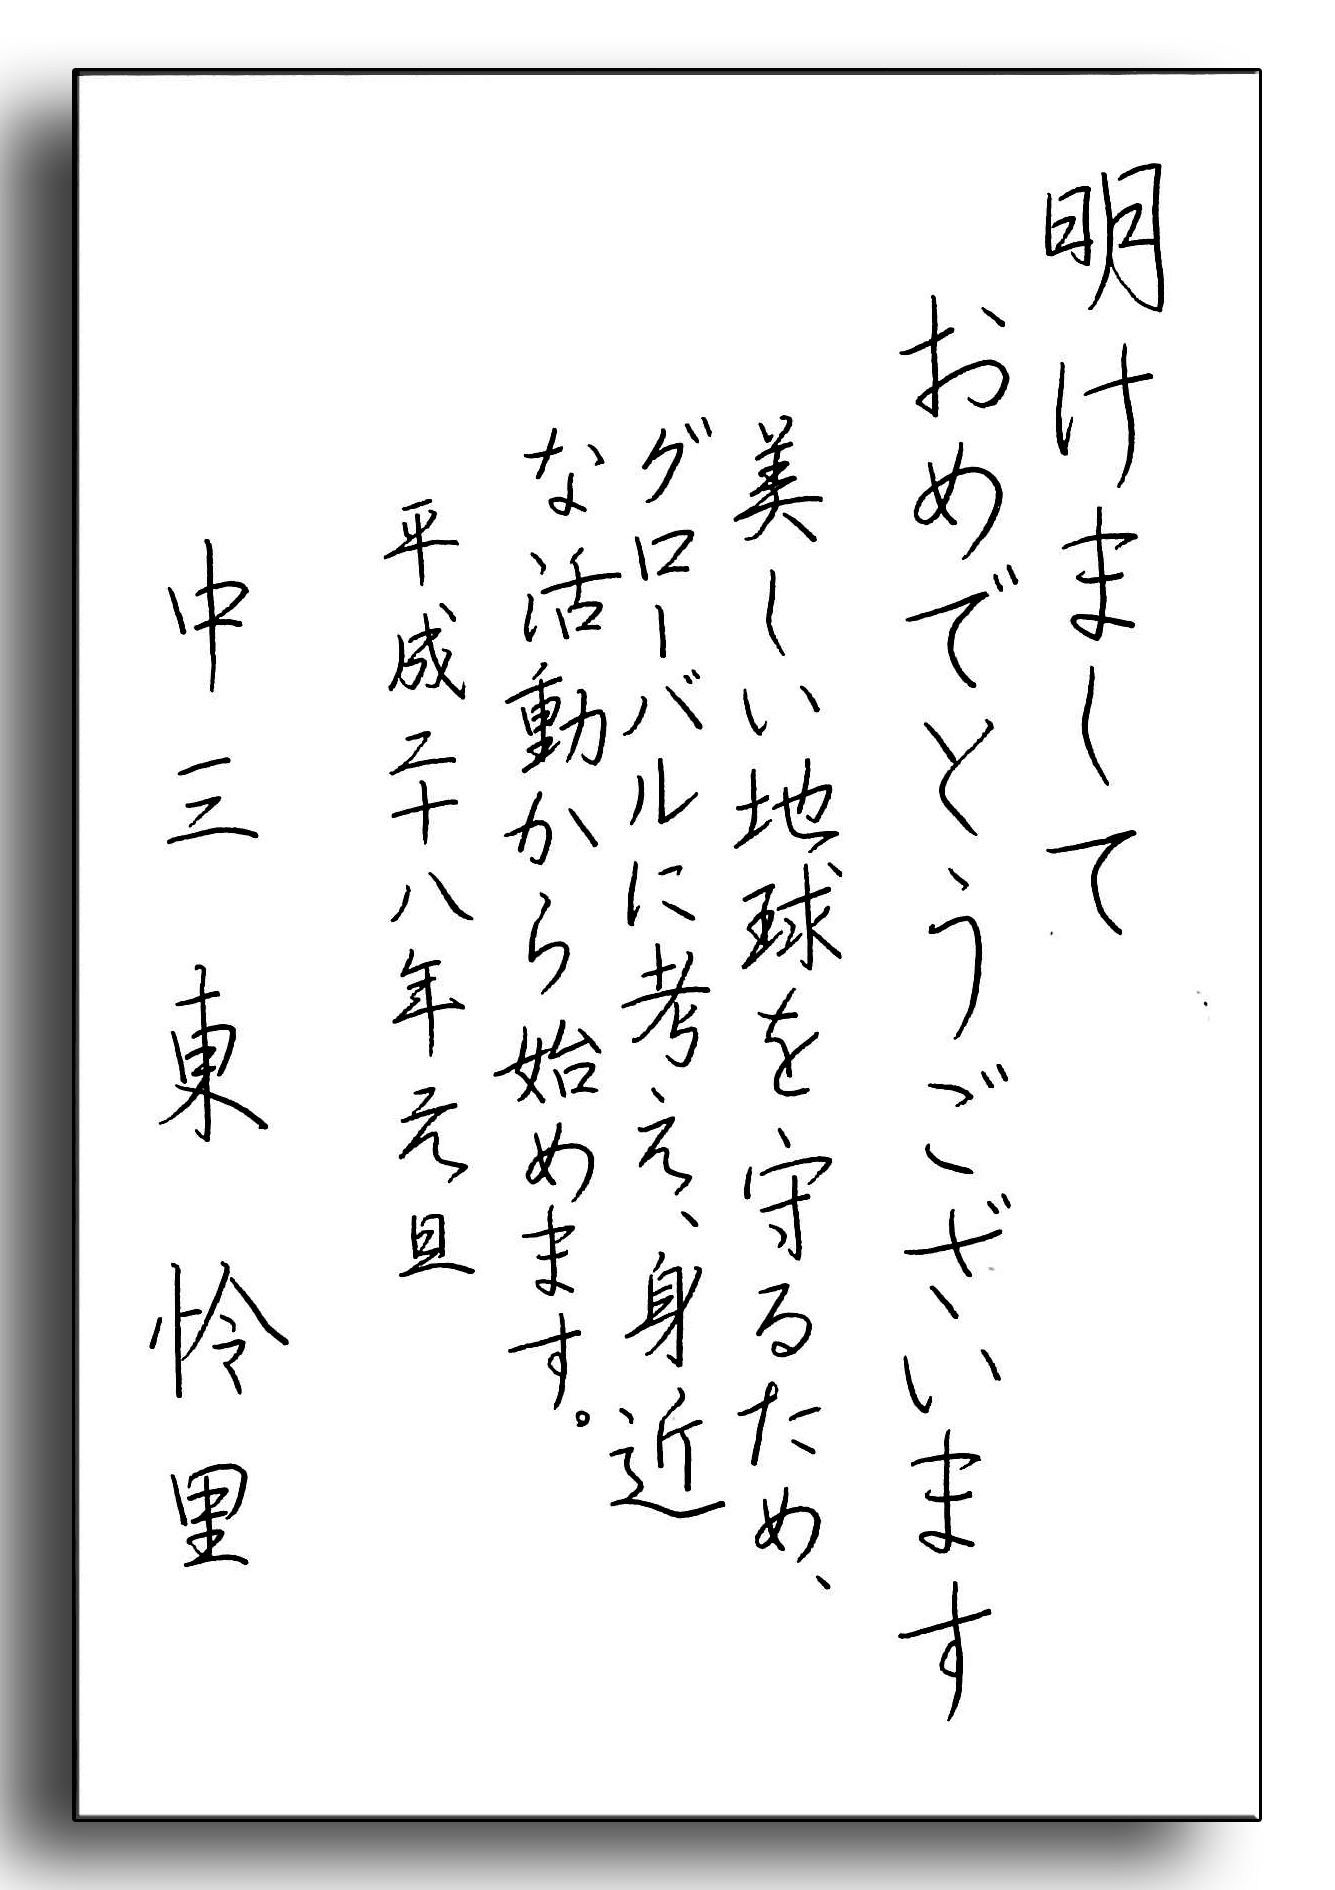 明けまして
おめでとうございます
美しい地球を守るため、
グローバルに考え、身近
な活動から始めます。
平成二十八年元旦
中三 東 怜里